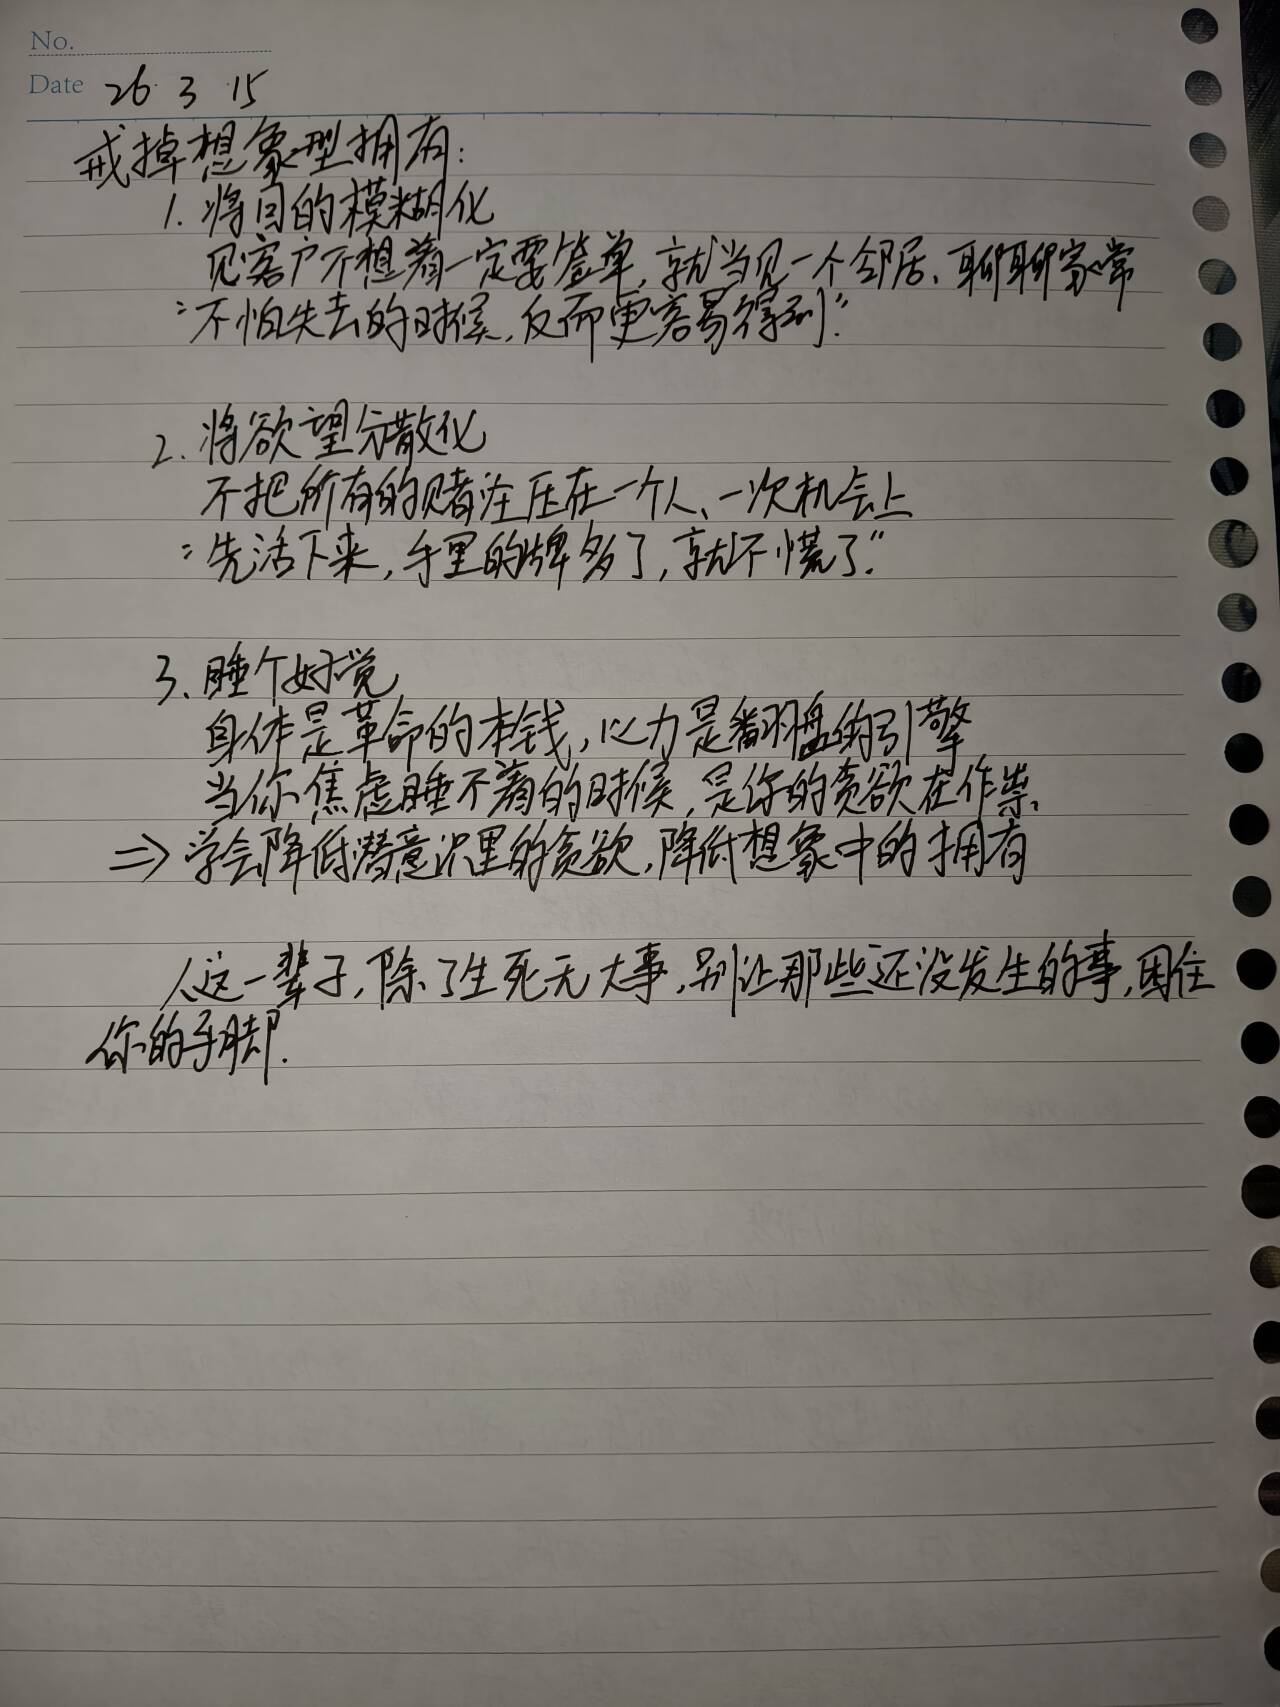 No.
Date 26. 3 .15
戒掉想象型拥有:
1. 将目的模糊化
见客户不想着一定要签单,就当见一个邻居、聊聊家常
"不怕失去的时候,反而更容易得到."
2. 将欲望分散化
不把所有的赌注压在一个人、一次机会上
"先活下来,手里的牌多了,就不慌了."
3、睡个好觉
身体是革命的本钱,心力是翻盘的引擎
当你焦虑睡不着的时候,是你的贪欲在作祟、
⇒ 学会降低潜意识里的贪欲,降低想象中的拥有
人这一辈子,除了生死无大事,别让那些还没发生的事,困住
你的手脚.